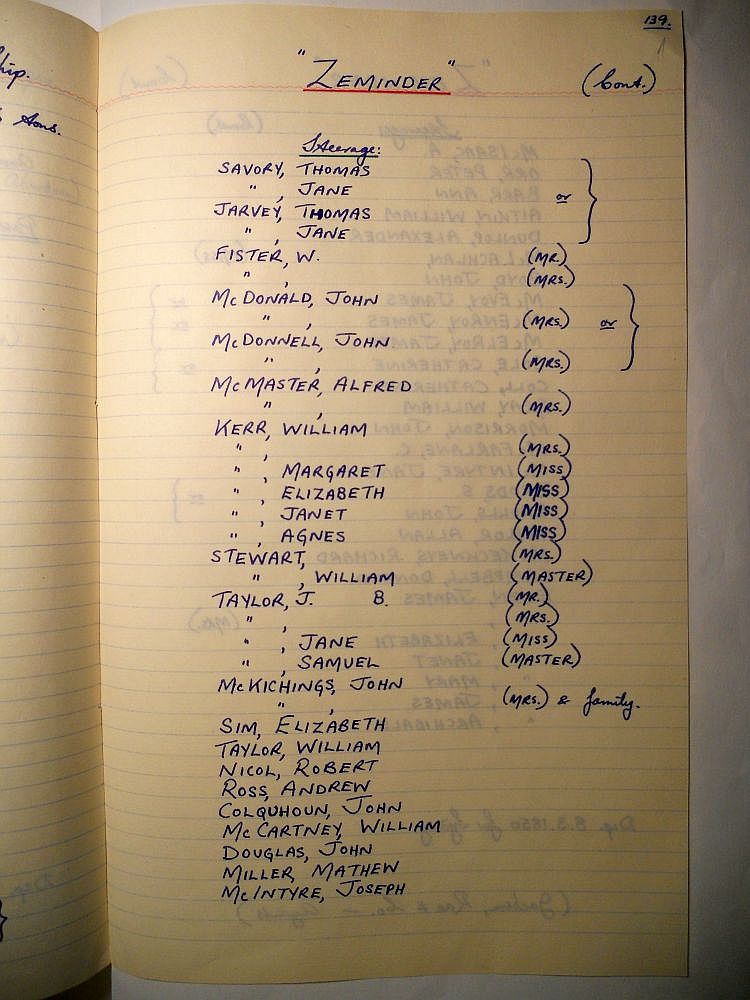 hip.
Sons.
139.
"ZEMINDER" (Cont.)
Steerage:
SAVORY, THOMAS
" , JANE or
JARVEY, THOMAS
" , JANE
FISTER, W. (MR.)
" , (MRS.)
McDONALD, JOHN
" , (MRS.) or
McDONNELL, JOHN
" , (MRS.)
McMASTER, ALFRED
" , (MRS.)
KERR, WILLIAM
" , (MRS.)
" , MARGARET (MISS)
" , ELIZABETH (MISS)
" , JANET (MISS)
" , AGNES (MISS)
STEWART, (MRS.)
" , WILLIAM (MASTER)
TAYLOR, J. B. (MR.)
" , (MRS.)
" , JANE (MISS)
" , SAMUEL (MASTER)
McKICHINGS, JOHN
" , (MRS.) & family.
SIM, ELIZABETH
TAYLOR, WILLIAM
NICOL, ROBERT
ROSS, ANDREW
COLQUHOUN, JOHN
McCARTNEY, WILLIAM
DOUGLAS, JOHN
MILLER, MATHEW
McINTYRE, JOSEPH